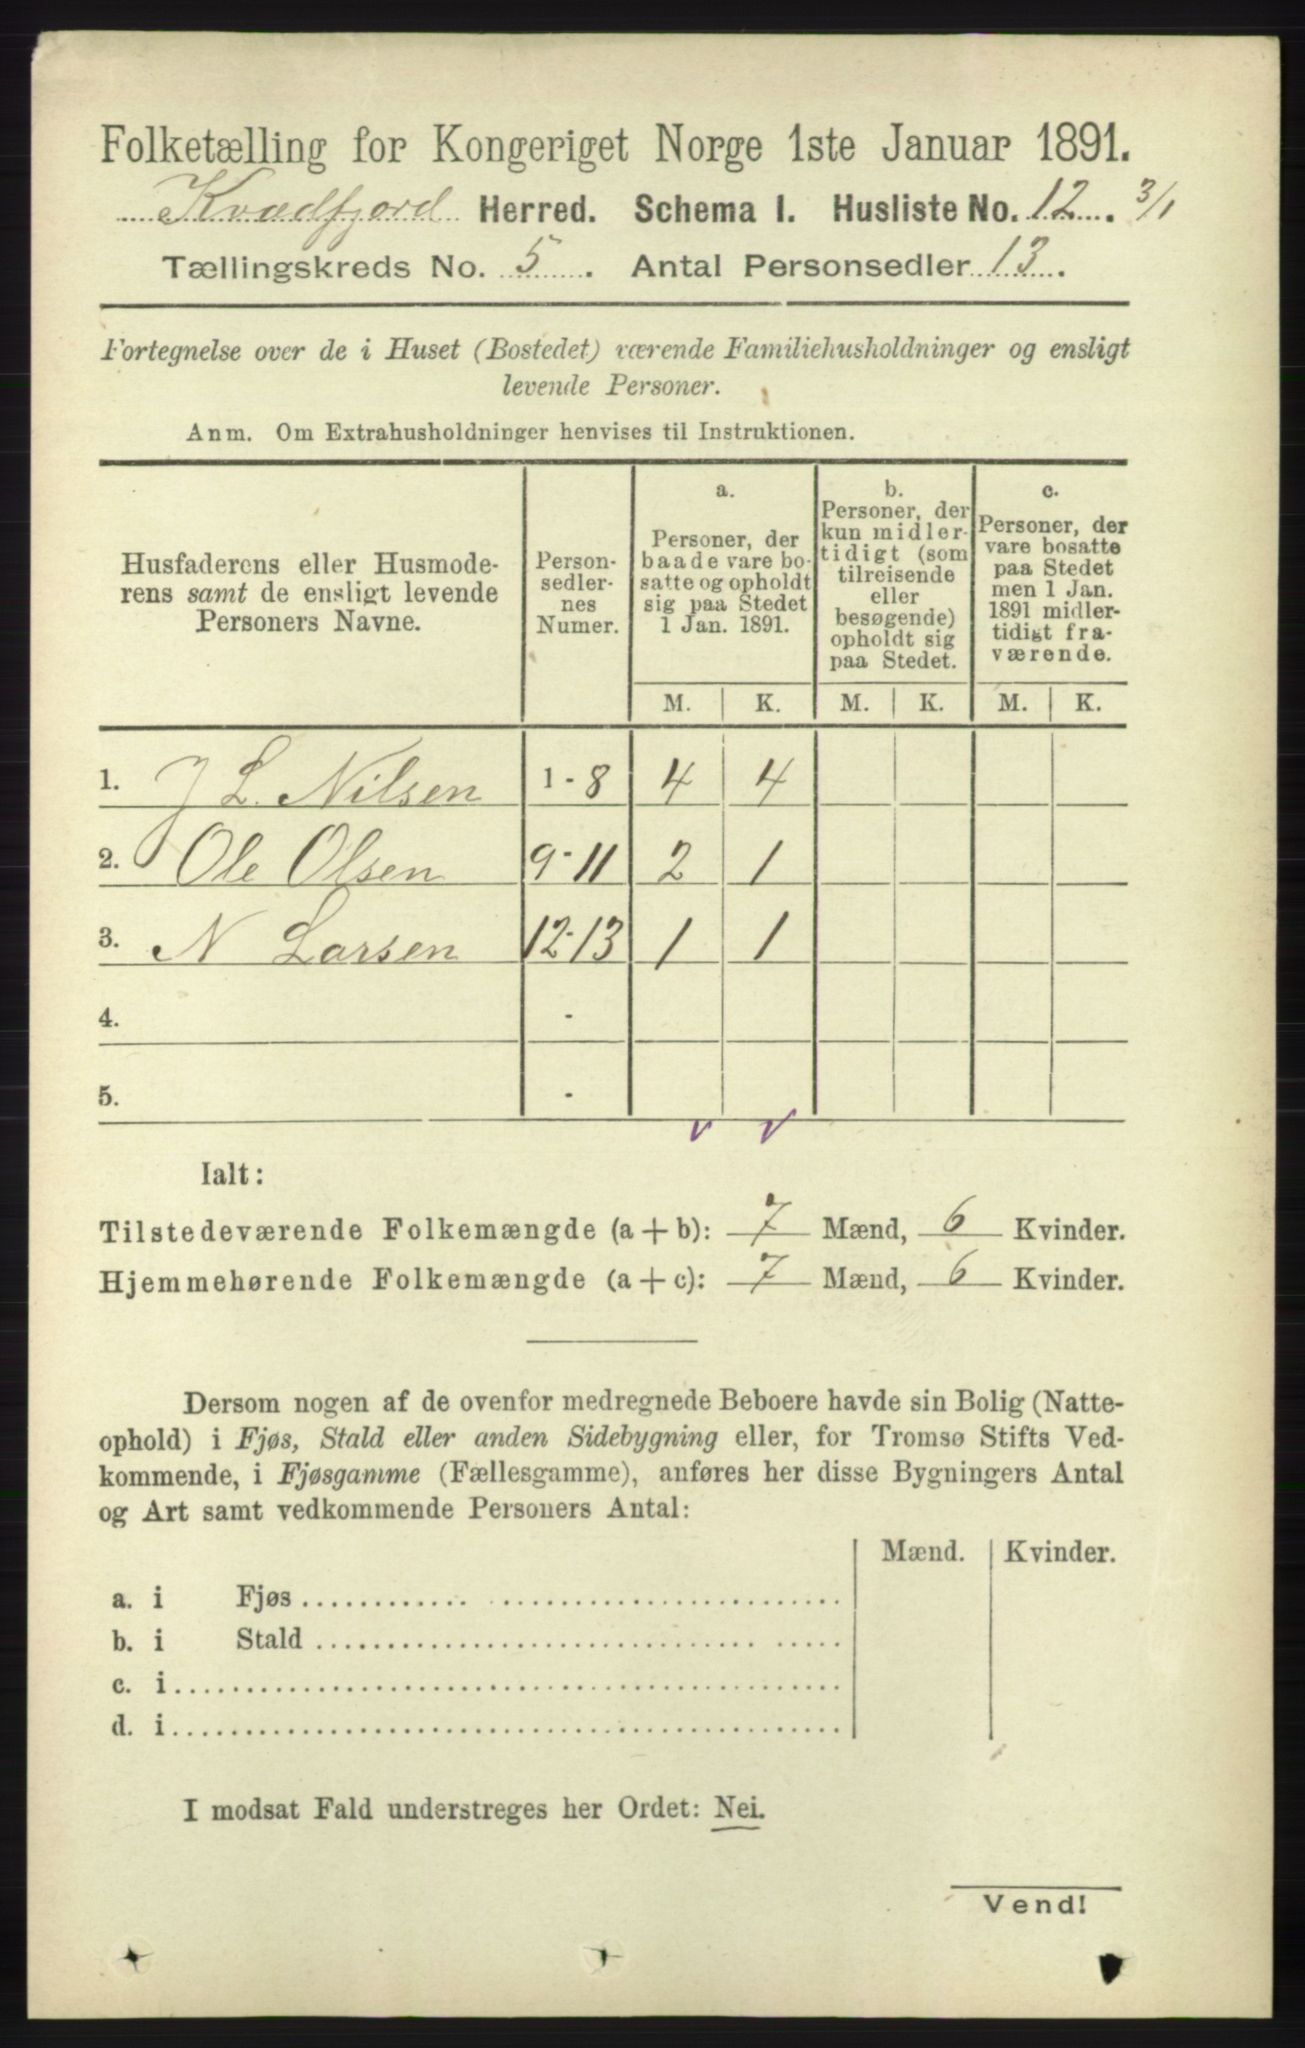 Folketælling for Kongeriget Norge 1ste Januar 1891.
Kvædfjord Herred. Schema I. Husliste No. 12. 3/1
Tællingskreds No. 5. Antal Personsedler 13.
Fortegnelse over de i Huset (Bostedet) værende Familiehusholdninger og ensligt
levende Personer.
Anm. Om Extrahusholdninger henvises til Instruktionen.
Husfaderens eller Husmode-
rens samt de ensligt levende
Personers Navne.
Person-
sedler-
nes
Numer.
a.
Personer, der
baade vare bo-
satte og opholdt
sig paa Stedet
1 Jan. 1891.
b.
Personer, der
kun midler-
tidigt (som
tilreisende
eller
besøgende)
opholdt sig
paa Stedet.
c.
Personer, der
vare bosatte
paa Stedet
men 1 Jan.
1891 midler-
tidigt fra-
værende.
M. K. M. K. M. K.
1. J L. Nilsen 1-8 4 4
2. Ole Olsen 9-11 2 1
3. N Larsen 12-13 1 1
4. -
5. -
Ialt:
Tilstedeværende Folkemængde (a + b): 7 Mænd, 6 Kvinder.
Hjemmehørende Folkemængde (a + c): 7 Mænd, 6 Kvinder.
Dersom nogen af de ovenfor medregnede Beboere havde sin Bolig (Natte-
ophold) i Fjøs, Stald eller anden Sidebygning eller, for Tromsø Stifts Ved-
kommende, i Fjøsgamme (Fællesgamme), anføres her disse Bygningers Antal
og Art samt vedkommende Personers Antal:
Mænd. Kvinder.
a. i Fjøs
b. i Stald
c. i
d. i
I modsat Fald understreges her Ordet: Nei.
Vend!